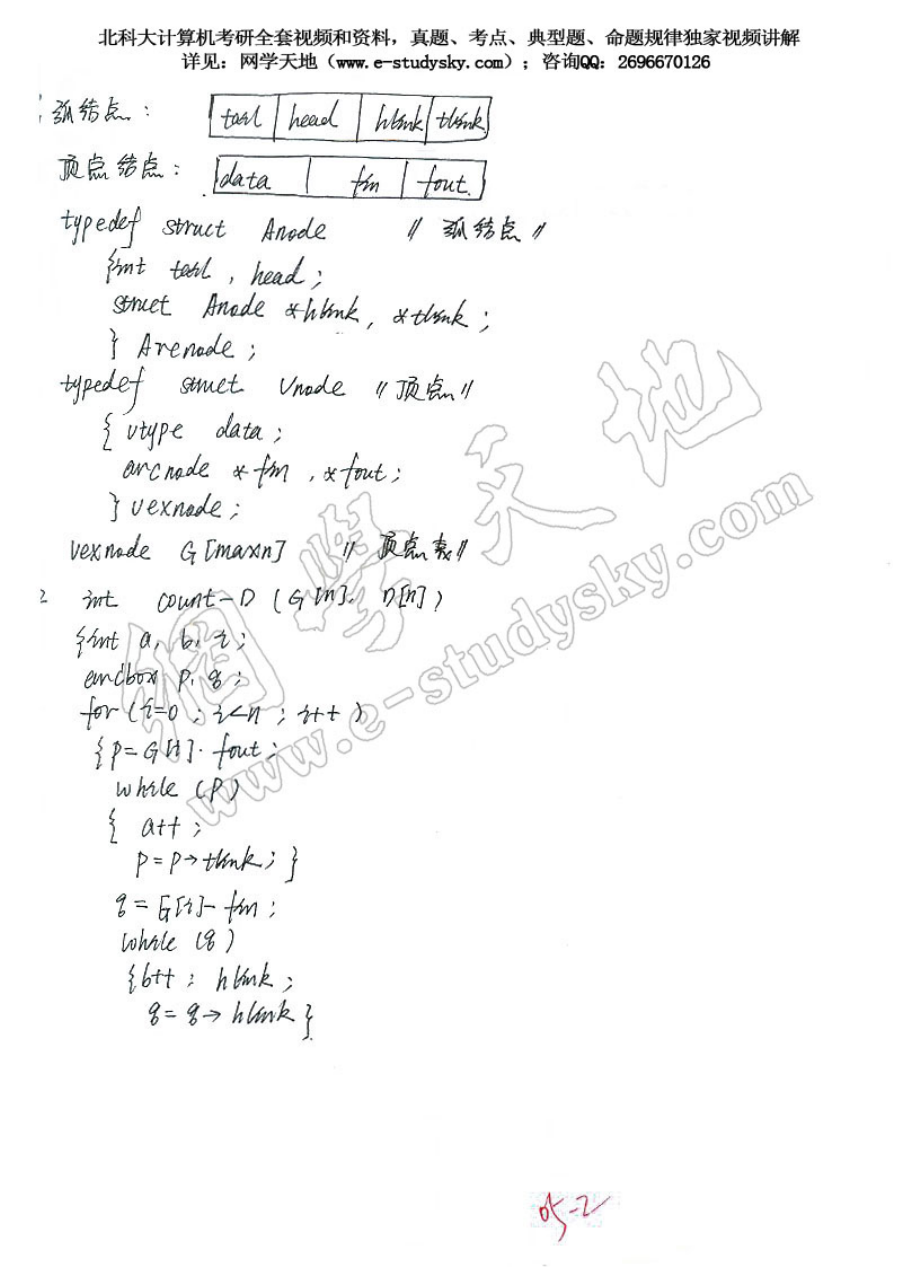 北科大计算机考研全套视频和资料，真题、考点、典型题、命题规律独家视频讲解
详见：网学天地（www.e-studysky.com）；咨询QQ：2696670126
弧结点： tail head hlink tlink
顶点结点： data fin fout
typedef struct Anode // 弧结点 //
{int tail , head ;
struct Anode *hlink, *tlink ;
} Arcnode ;
typedef struct Vnode // 顶点 //
{ vtype data ;
arcnode *fin , *fout ;
} vexnode ;
vexnode G[maxn] // 顶点表 //
2 int count-D ( G[n], D[n] )
{int a, b, i ;
arcbox p, q ;
for (i=0 ; i<n ; i++ )
{p= G[i]. fout ;
while (p)
{ a++ ;
p = p→tlink ; }
q = G[i]- fin ;
while (q)
{b++ ; hlink ;
q = q→ hlink }
網學天地
www.e-studysky.com
05-2